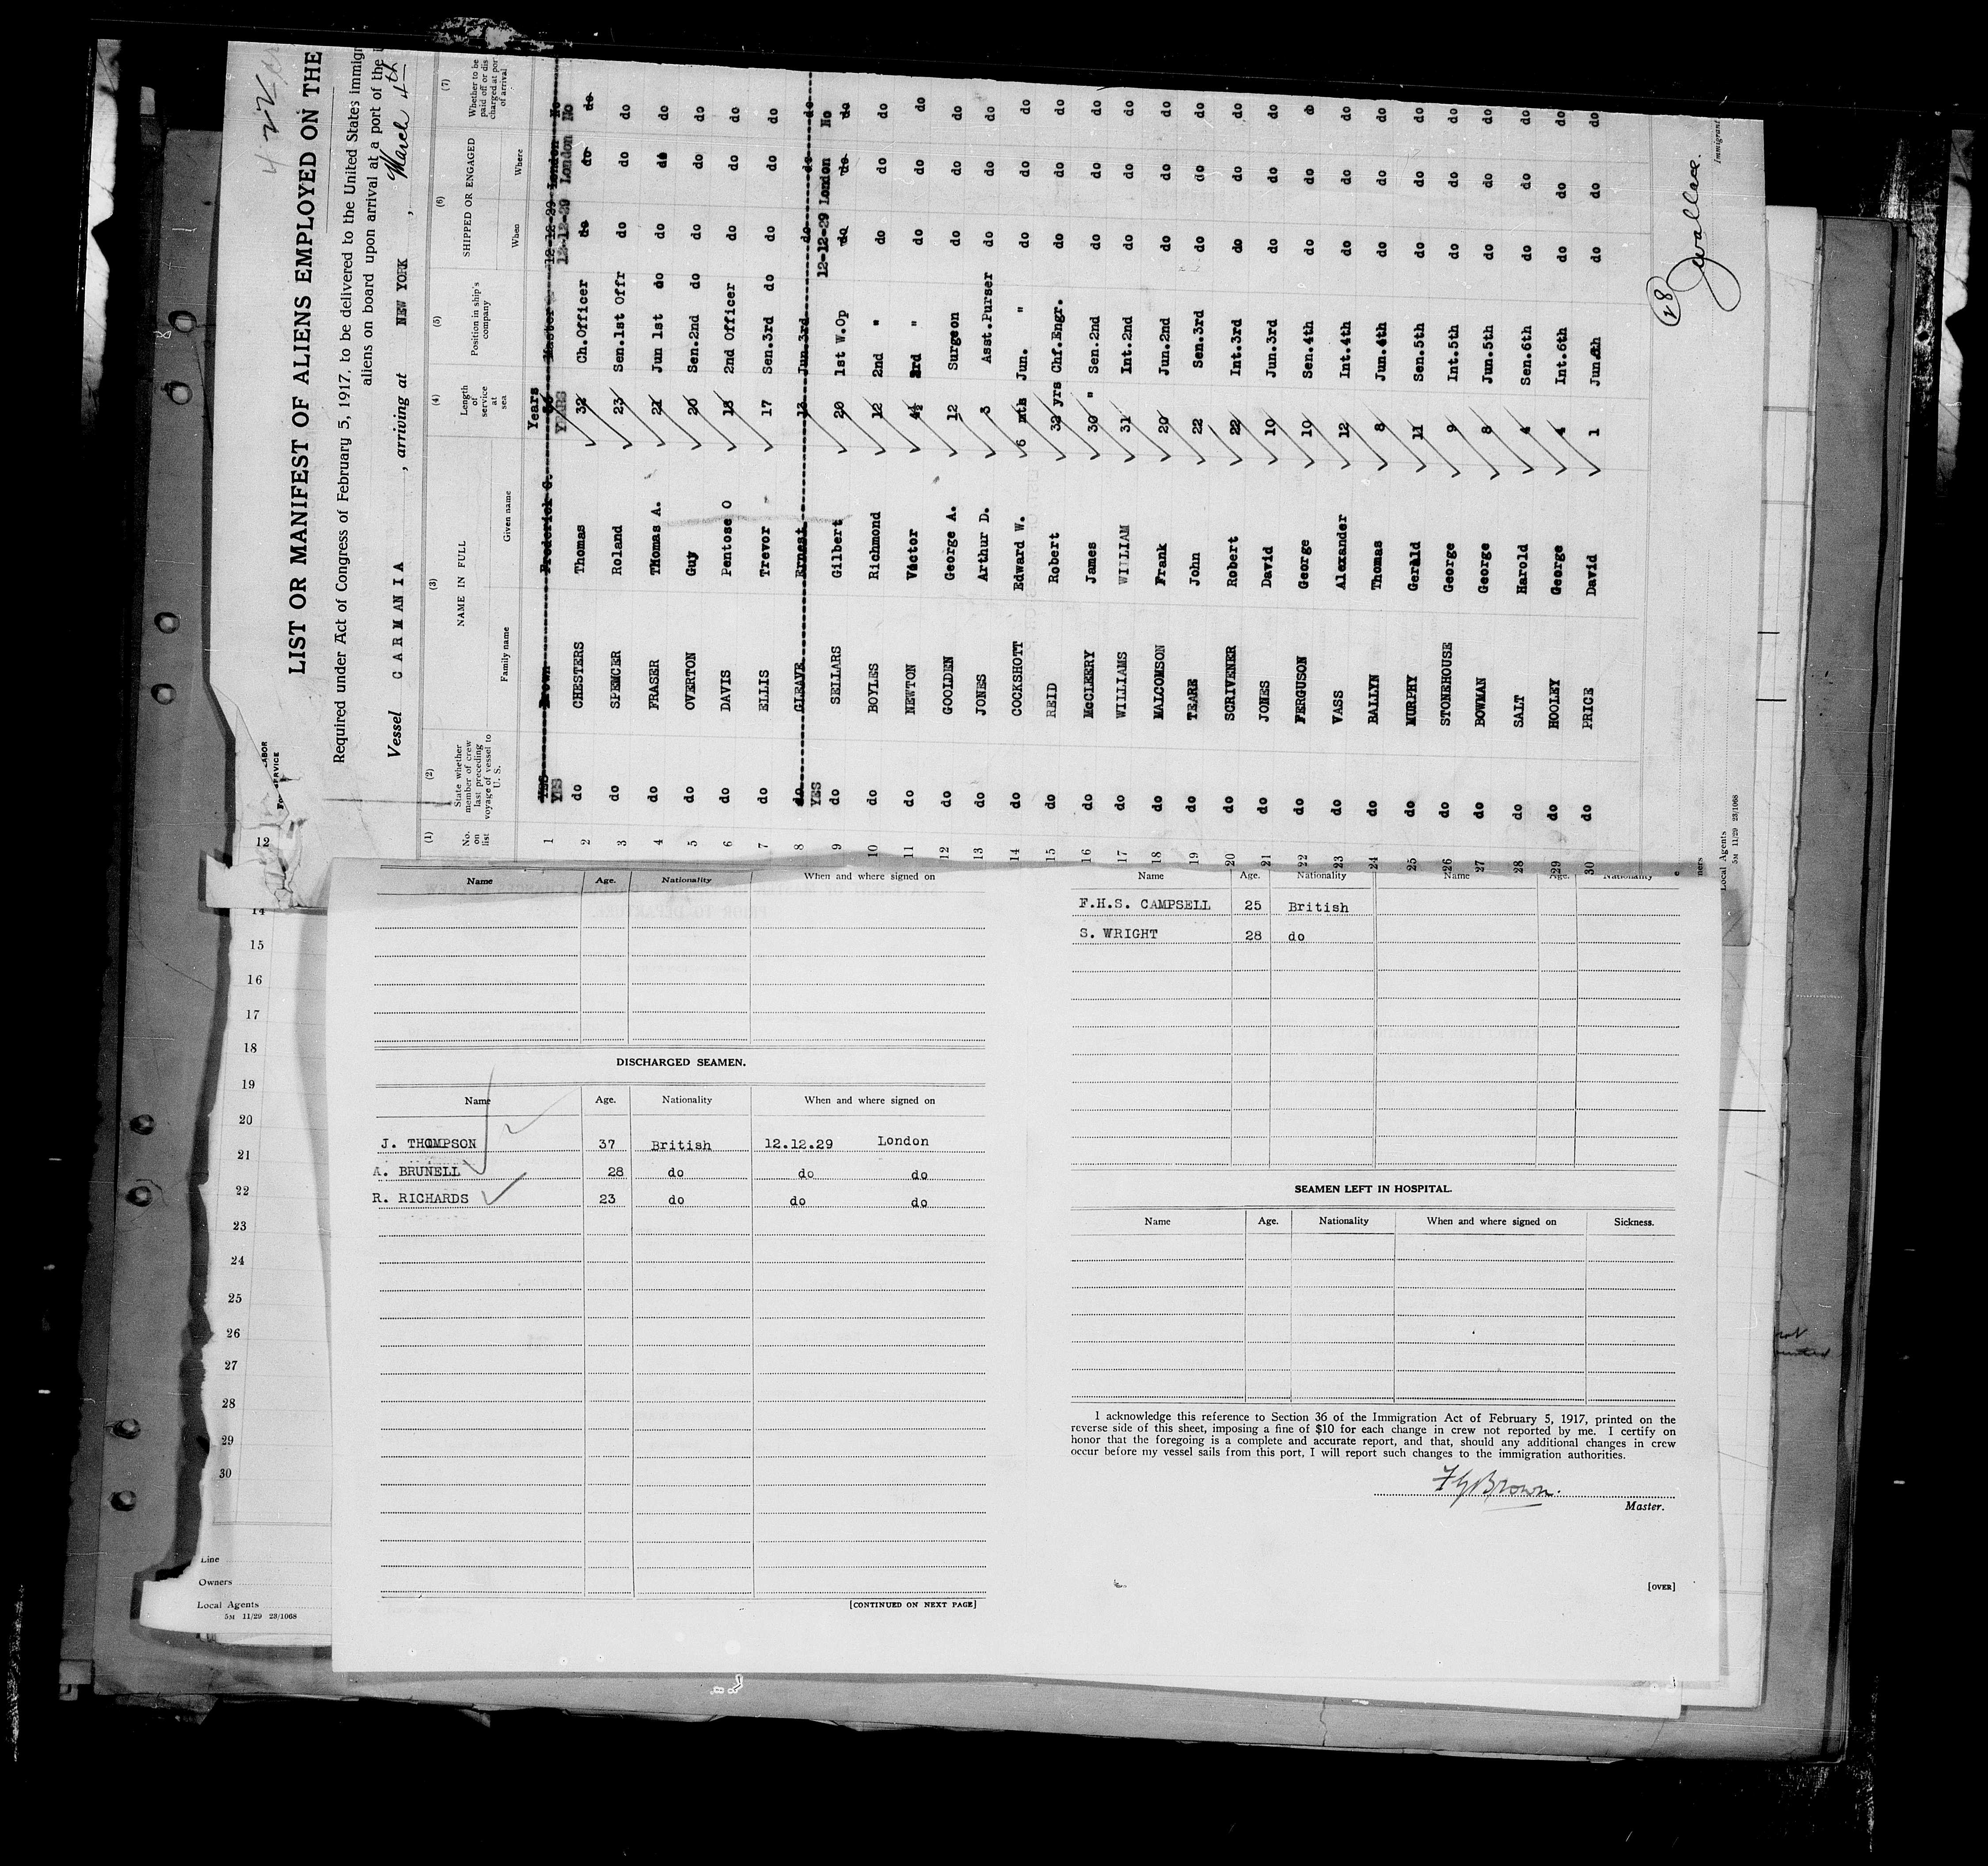 LIST OR MANIFEST OF ALIENS EMPLOYED ON THE
Required under Act of Congress of February 5, 1917, to be delivered to the United States immigr
aliens on board upon arrival at a port of the
Vessel CARMANIA , arriving at NEW YORK , March 4th
(1) (2) (3) (4) (5) (6) (7)
No. on list State whether member of crew last preceding voyage of vessel to U. S. NAME IN FULL Family name Given name Length of service at sea Position in ship's company SHIPPED OR ENGAGED When Where Whether to be paid off or discharged at port of arrival
Years
1 YES Brown Frederick G. Master 12-12-29 London No
YES YEARS 12-12-29 London No
2 do CHESTERS Thomas 32 Ch.Officer do do do
3 do SPENCER Roland 23 Sen.1st Offr do do do
4 do FRASER Thomas A. 21 Jun 1st do do do do
5 do OVERTON Guy 20 Sen.2nd do do do do
6 do DAVIS Pentose O 18 2nd Officer do do do
7 do ELLIS Trevor 17 Sen.3rd do do do do
8 do GLEAVE Ernest 13 Jun.3rd do do do
YES 12-12-29 London No
9 do SELLARS Gilbert 20 1st W.Op do do do
10 do BOYLES Richmond 12 2nd " do do do
11 do NEWTON Victor 4½ 3rd " do do do
12 do GOOLDEN George A. 12 Surgeon do do do
13 do JONES Arthur D. 3 Asst.Purser do do do
14 do COCKSHOTT Edward W. 6 mth Jun. " do do do
15 do REID Robert 32 yrs Chf.Engr. do do do
16 do McCLEERY James 30 " Sen.2nd do do do
17 do WILLIAMS WILLIAM 31 Int.2nd do do do
18 do MALCOMSON Frank 20 Jun.2nd do do do
19 do TEARE John 22 Sen.3rd do do do
20 do SCRIVENER Robert 22 Int.3rd do do do
21 do JONES David 10 Jun.3rd do do do
22 do FERGUSON George 10 Sen.4th do do do
23 do VASS Alexander 12 Int.4th do do do
24 do BALLYN Thomas 8 Jun.4th do do do
25 do MURPHY Gerald 11 Sen.5th do do do
26 do STONEHOUSE George 9 Int.5th do do do
27 do BOWMAN George 8 Jun.5th do do do
28 do SALT Harold 4 Sen.6th do do do
29 do HOOLEY George 4 Int.6th do do do
30 do PRICE David 1 Jun.6th do do do
28
Immigrant
Local Agents
5M 11/29 23/1068
12
14
15
16
17
18
19
20
21
22
23
24
25
26
27
28
29
30
Line
Owners
Local Agents
5M 11/29 23/1068
Name Age. Nationality When and where signed on
DISCHARGED SEAMEN.
Name Age. Nationality When and where signed on
J. THOMPSON 37 British 12.12.29 London
A. BRUNELL 28 do do do
R. RICHARDS 23 do do do
[CONTINUED ON NEXT PAGE]
Name Age. Nationality Name Age. Nationality
F.H.S. CAMPSELL 25 British
S. WRIGHT 28 do
SEAMEN LEFT IN HOSPITAL.
Name Age. Nationality When and where signed on Sickness.
I acknowledge this reference to Section 36 of the Immigration Act of February 5, 1917, printed on the
reverse side of this sheet, imposing a fine of $10 for each change in crew not reported by me. I certify on
honor that the foregoing is a complete and accurate report, and that, should any additional changes in crew
occur before my vessel sails from this port, I will report such changes to the immigration authorities.
F G Brown.
Master.
[OVER]